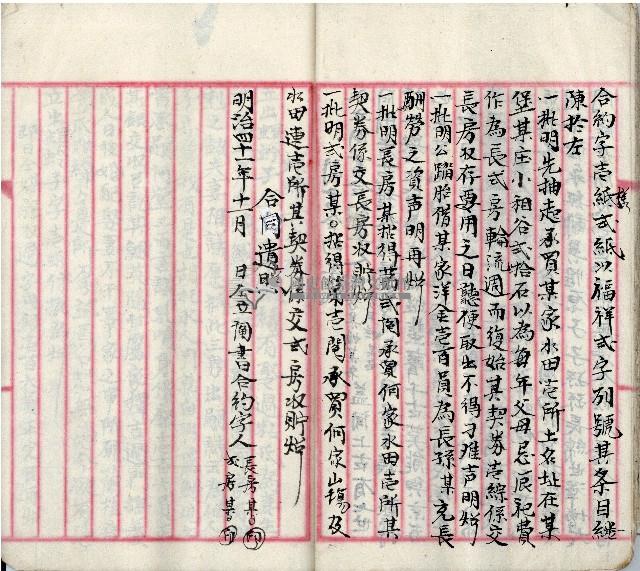 合約字壹紙弍紙以福祥弍字列號其条目継
陳於左
一批明先抽起承買某家水田壹所土名址在某
堡某庄小租谷弍拾石以為每年父母忌辰祀費
作為長弍房輪流週而復始其契劵壹綜係交
長房收存要用之日聽便取出不得刁难声明炤
一批明公踏胎借某家洋金壹百員為長孫某充長
酬勞之資声明再炤
一批明長房某拈得第弍鬮承買何家水田壹所其
契劵係交長房收貯炤
一批明弍房某拈得第壹鬮承買何家山塲及
水田連壹所其契劵係交弍房收貯炤
合同遺照
明治四十一年十一月 日仝立鬮書合約字人
長房某 印
弍房某 印